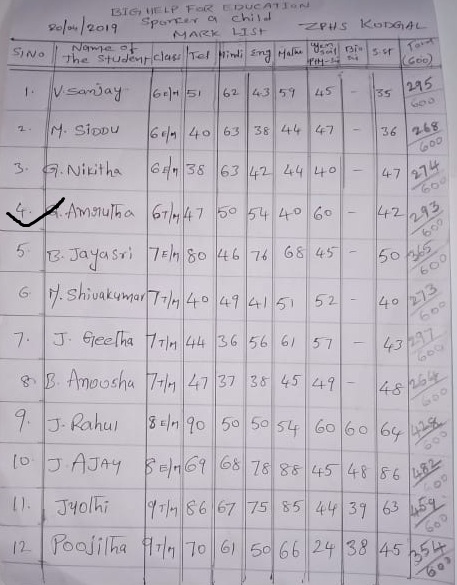 BIG HELP FOR EDUCATION
20/04/2019 Sponcer a child ZPHS KODGAL
MARK LIST
SiNo Name of The Student Class Tel Hindi Eng Maths Gen Sci/ PH-Sci Bio Sci S.st Total (600)
1. V. Sanjay 6E/M 51 62 43 59 45 - 35 295/600
2. M. SIDDU 6E/M 40 63 38 44 47 - 36 268/600
3. G. Nikitha 6E/M 38 63 42 44 40 - 47 274/600
4. G. Amrutha 6T/M 47 50 54 40 60 - 42 293/600
5. B. Jayasri 7E/M 80 46 76 68 45 - 50 365/600
6 M. Shivakumar 7T/M 40 49 41 51 52 - 40 273/600
7. J. Geetha 7T/M 44 36 56 61 57 - 43 297/600
8. B. Anoosha 7T/M 47 37 38 45 49 - 48 264/600
9. J. Rahul 8E/M 90 50 50 54 60 60 64 428/600
10 J. AJAY 8E/M 69 68 78 88 45 48 86 482/600
11. Jyothi 9T/M 86 67 75 85 44 39 63 459/600
12 Poojitha 9T/M 70 61 50 66 24 38 45 354/600